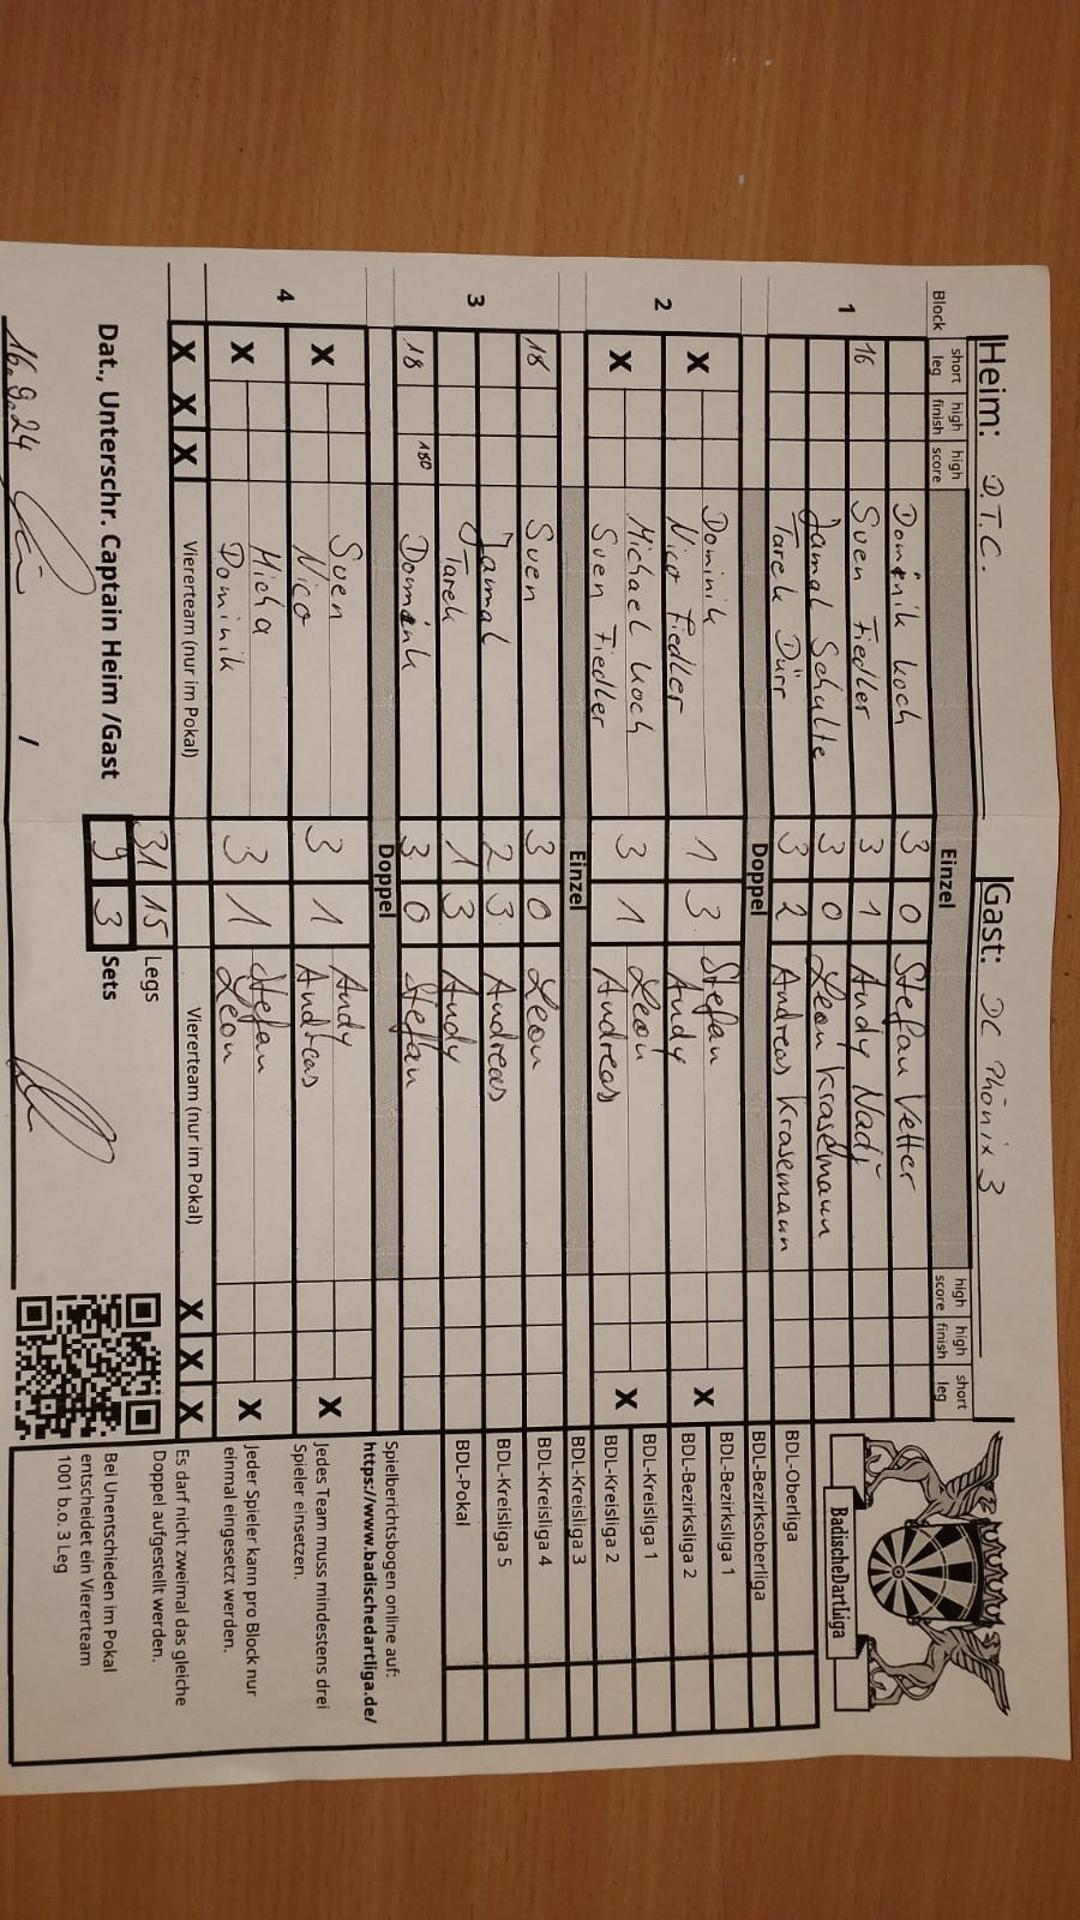 Heim: D.T.C. Gast: DC Phönix 3
Block short leg high finish high score Einzel high score high finish short leg
1
Dominik Koch 3 0 Stefan Vetter
16 Sven Fiedler 3 1 Andy Nadj
Jamal Schulte 3 0 Leon Krasemann
Tarek Dürr 3 2 Andreas Krasemann
Doppel
2
X Dominik 1 3 Stefan X
Nico Fiedler Andy
X Michael Koch 3 1 Leon X
Sven Fiedler Andreas
Einzel
3
18 Sven 3 0 Leon
Jamal 2 3 Andreas
Tarek 1 3 Andy
18 180 Dominik 3 0 Stefan
Doppel
4
X Sven 3 1 Andy X
Nico Andreas
X Micha 3 1 Stefan X
Dominik Leon
X X X Viererteam (nur im Pokal) Viererteam (nur im Pokal) X X X
31 15 Legs
Dat., Unterschr. Captain Heim /Gast 9 3 Sets
16.9.24 /
BadischeDartLiga
BDL-Oberliga
BDL-Bezirksoberliga
BDL-Bezirksliga 1
BDL-Bezirksliga 2
BDL-Kreisliga 1
BDL-Kreisliga 2
BDL-Kreisliga 3
BDL-Kreisliga 4
BDL-Kreisliga 5
BDL-Pokal
Spielberichtsbogen online auf:
https://www.badischedartliga.de/
Jedes Team muss mindestens drei
Spieler einsetzen.
Jeder Spieler kann pro Block nur
einmal eingesetzt werden.
Es darf nicht zweimal das gleiche
Doppel aufgestellt werden.
Bei Unentschieden im Pokal
entscheidet ein Viererteam
1001 b.o. 3 Leg